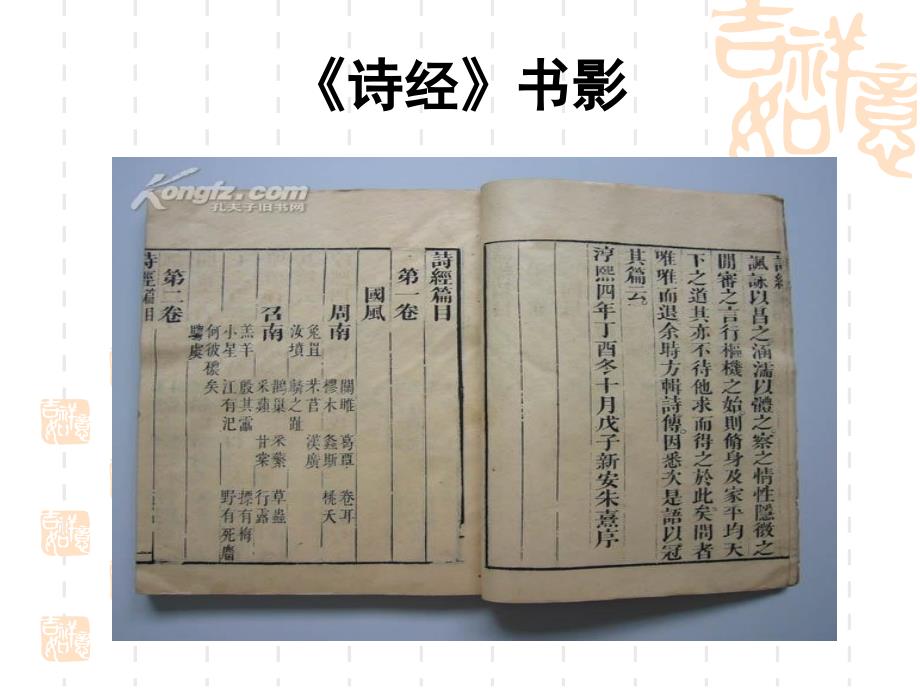 《诗经》书影
吉祥如意
Kongfz.com
孔夫子旧书网
詩經
諷詠以昌之涵濡以體之察之情性隱微之
間審之言行樞機之始則脩身及家平均天
下之道其亦不待他求而得之於此矣問者
唯唯而退余時方輯詩傳因悉次是語以冠
其篇云
淳熙四年丁酉冬十月戊子新安朱熹序
詩經篇目
第一卷
國風
周南 關雎 葛覃 卷耳
樛木 螽斯 桃夭
兔罝 芣苢 漢廣
汝墳 麟之趾
召南 鵲巢 采蘩 草蟲
采蘋 甘棠 行露
羔羊 殷其靁 摽有梅
小星 江有汜 野有死麕
何彼襛矣
騶虞
第二卷
詩經篇目
吉祥如意
吉祥如意
吉祥如意